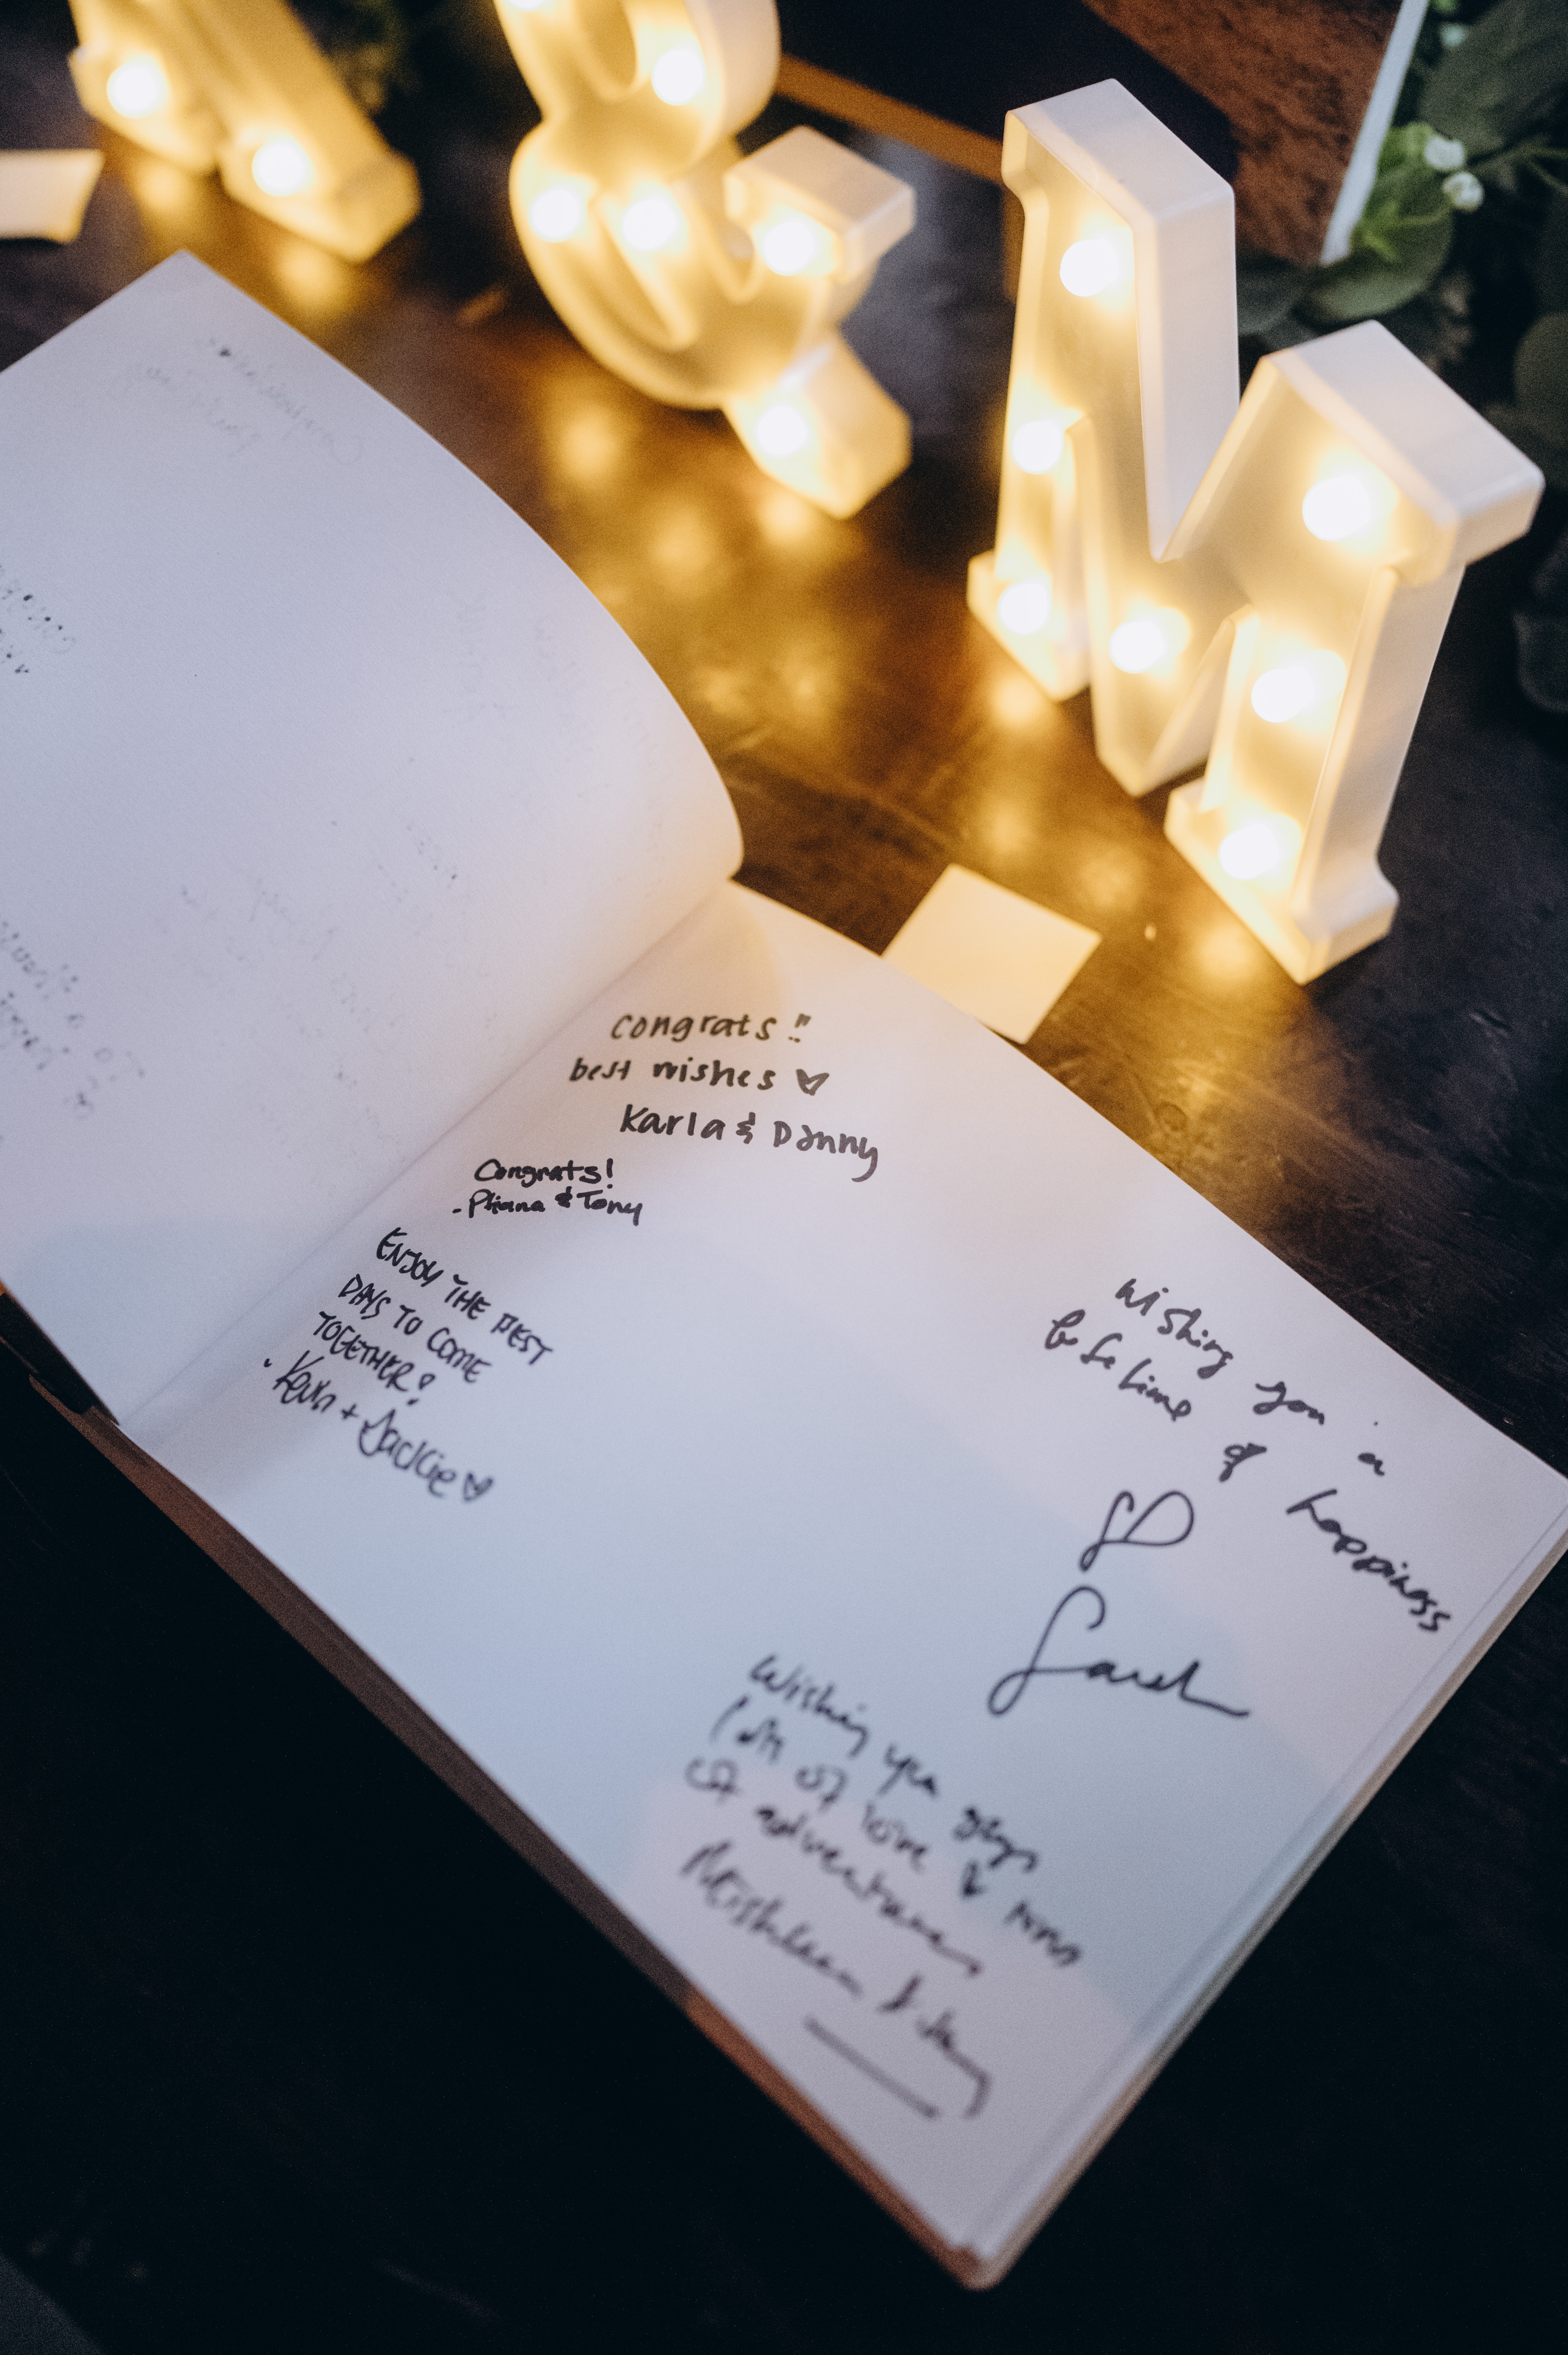 &
M
congrats!!
best wishes ♡
Karla & Danny
Congrats!
& Tony
ENJOY THE BEST
DAYS TO COME
TOGETHER!
Kevin + Jackie ♡
Wishing you a
life time of happiness
♡
Sarah
Wishing you guys
lots of love &
of adventures